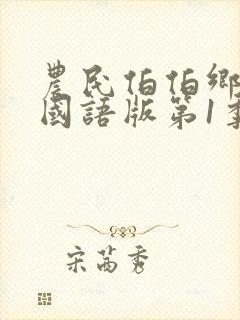 農民伯伯鄉
國語版第1季
宋茜秀